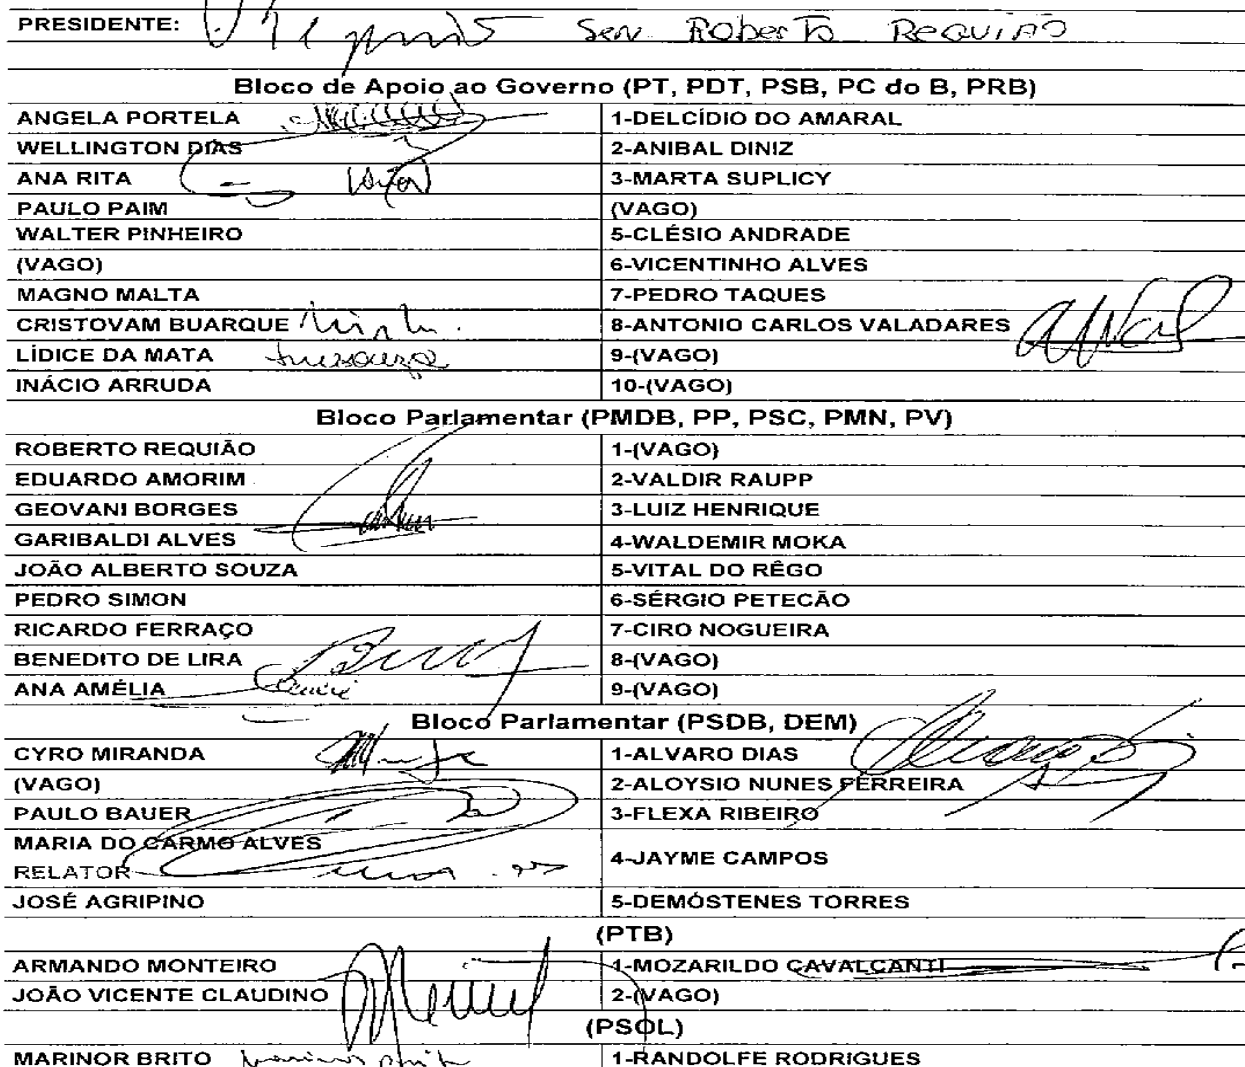 PRESIDENTE: Sen. Roberto Requião
Bloco de Apoio ao Governo (PT, PDT, PSB, PC do B, PRB)
ANGELA PORTELA 1-DELCÍDIO DO AMARAL
WELLINGTON DIAS 2-ANIBAL DINIZ
ANA RITA 3-MARTA SUPLICY
PAULO PAIM (VAGO)
WALTER PINHEIRO 5-CLÉSIO ANDRADE
(VAGO) 6-VICENTINHO ALVES
MAGNO MALTA 7-PEDRO TAQUES
CRISTOVAM BUARQUE 8-ANTONIO CARLOS VALADARES
LÍDICE DA MATA 9-(VAGO)
INÁCIO ARRUDA 10-(VAGO)
Bloco Parlamentar (PMDB, PP, PSC, PMN, PV)
ROBERTO REQUIÃO 1-(VAGO)
EDUARDO AMORIM 2-VALDIR RAUPP
GEOVANI BORGES 3-LUIZ HENRIQUE
GARIBALDI ALVES 4-WALDEMIR MOKA
JOÃO ALBERTO SOUZA 5-VITAL DO RÊGO
PEDRO SIMON 6-SÉRGIO PETECÃO
RICARDO FERRAÇO 7-CIRO NOGUEIRA
BENEDITO DE LIRA 8-(VAGO)
ANA AMÉLIA 9-(VAGO)
Bloco Parlamentar (PSDB, DEM)
CYRO MIRANDA 1-ALVARO DIAS
(VAGO) 2-ALOYSIO NUNES FERREIRA
PAULO BAUER 3-FLEXA RIBEIRO
MARIA DO CARMO ALVES
RELATOR 4-JAYME CAMPOS
JOSÉ AGRIPINO 5-DEMÓSTENES TORRES
(PTB)
ARMANDO MONTEIRO 1-MOZARILDO CAVALCANTI
JOÃO VICENTE CLAUDINO 2-(VAGO)
(PSOL)
MARINOR BRITO 1-RANDOLFE RODRIGUES